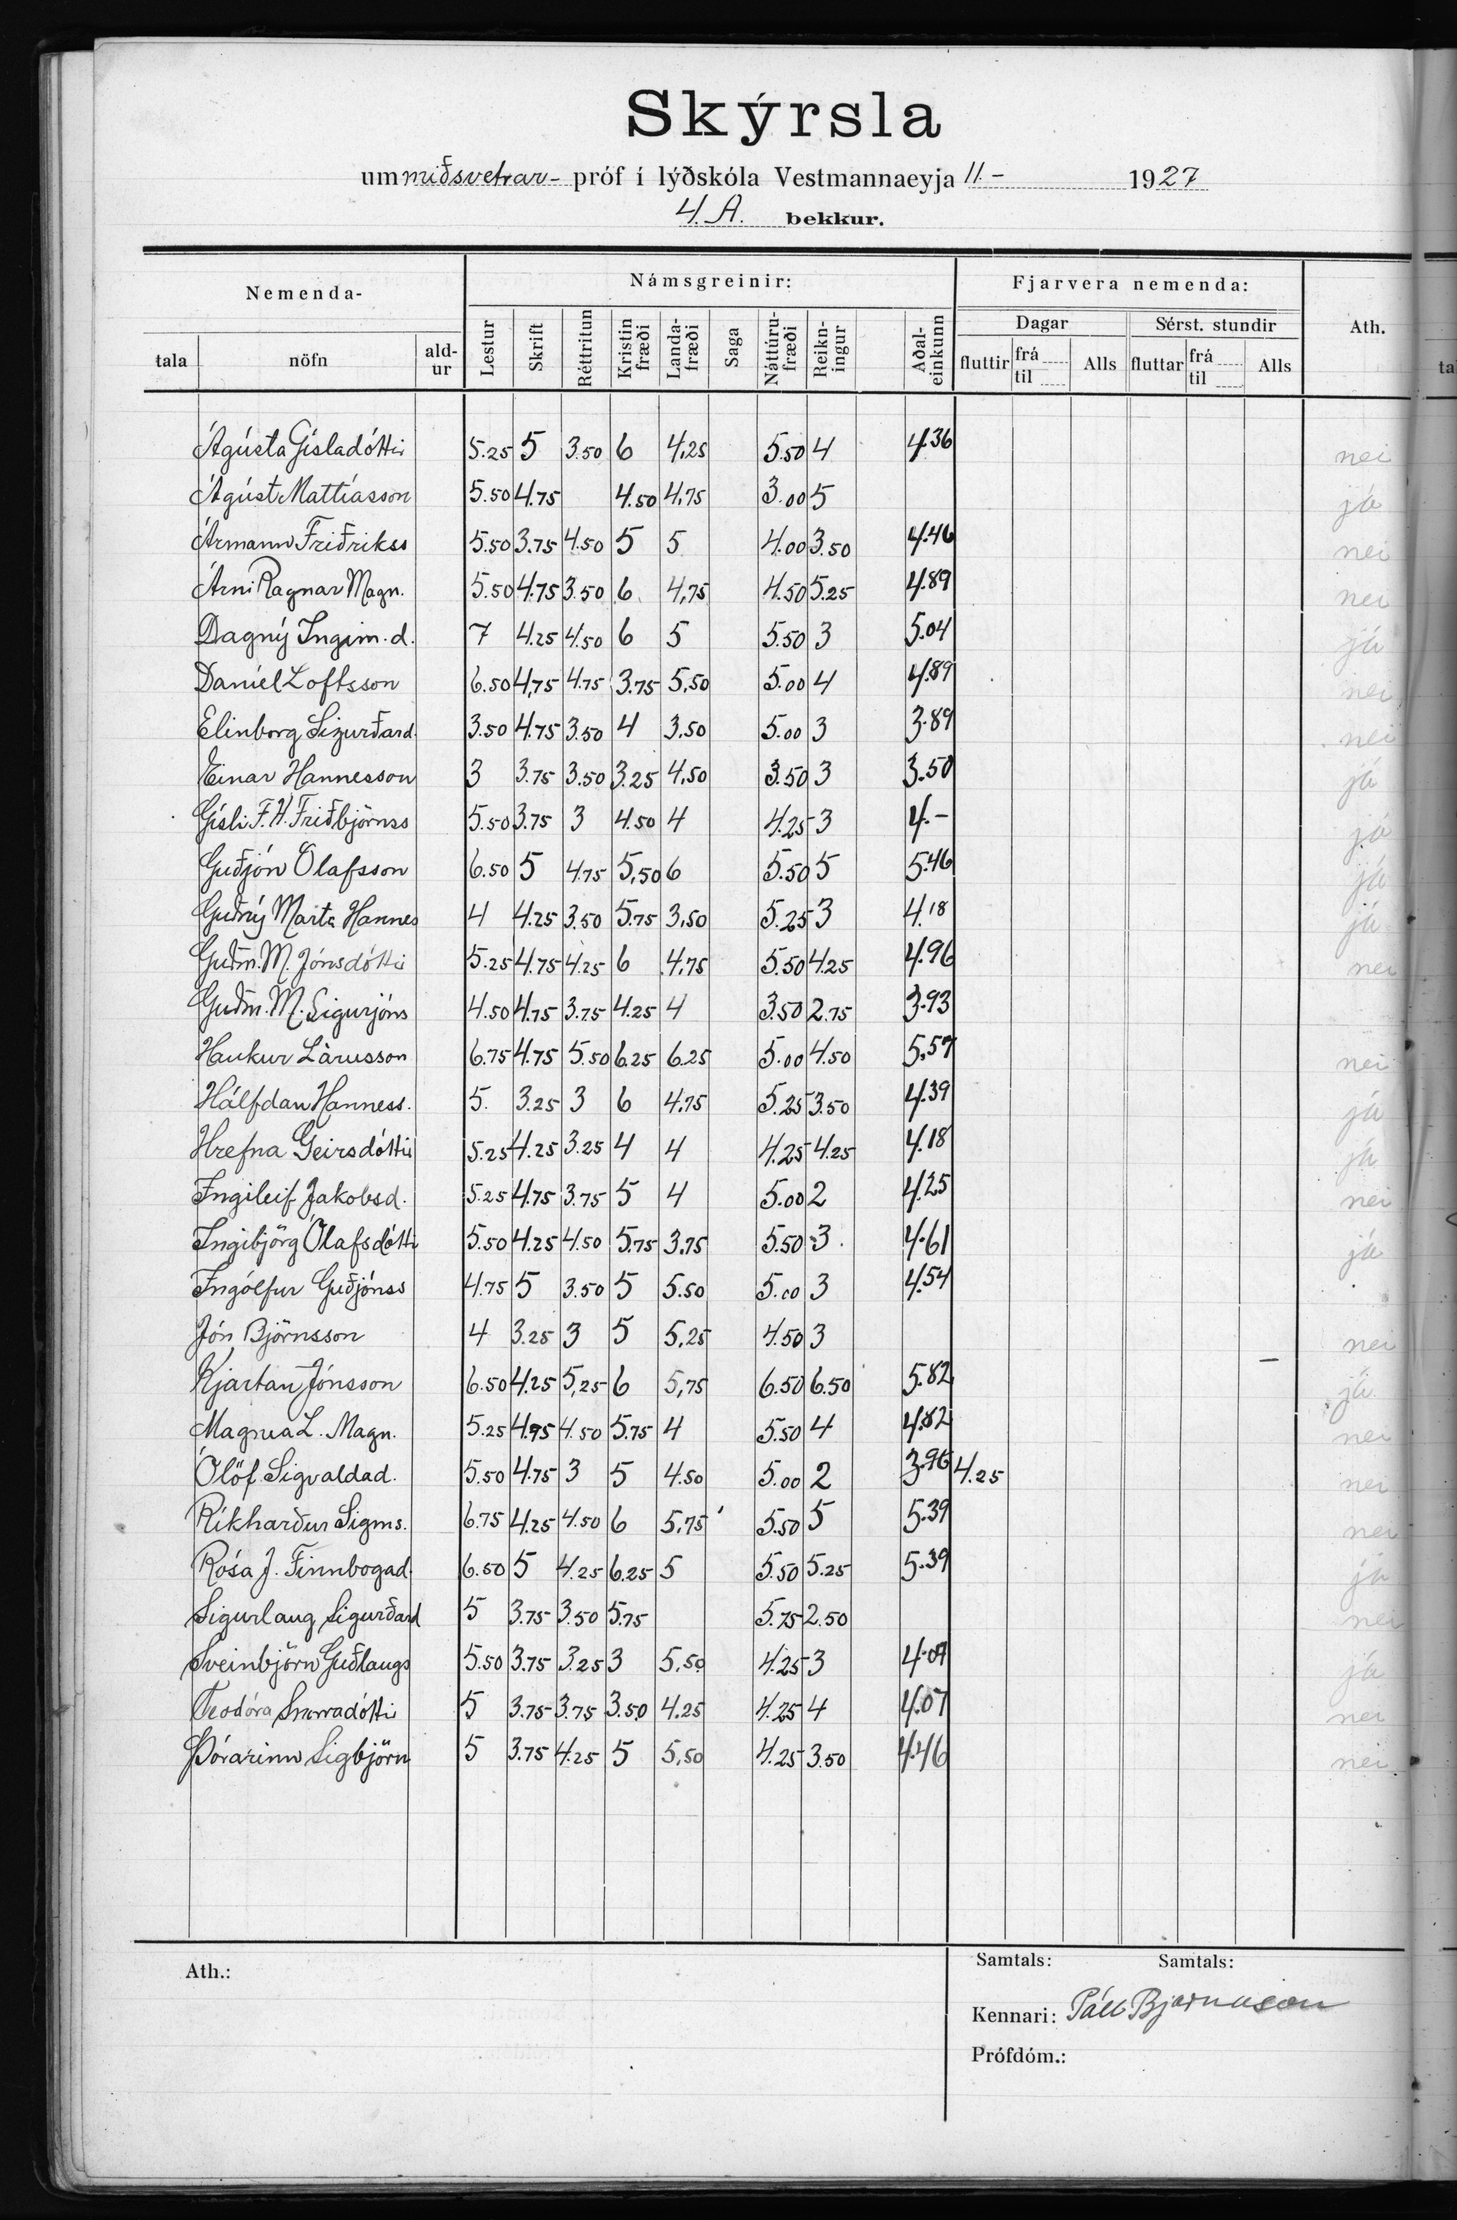 Skýrsla
um miðsvetrar- próf í lýðskóla Vestmannaeyja 11.- 1927
4. A. bekkur.
Nemenda- Námsgreinir: Fjarvera nemenda: Ath.
tala nöfn ald-ur Lestur Skrift Réttritun Kristin fræði Landa-fræði Saga Náttúru-fræði Reikn-ingur Aðal-einkunn Dagar Sérst. stundir
fluttir frá til Alls fluttar frá til Alls
Ágústa Gísladóttir 5.25 5 3.50 6 4,25 5.50 4 4.36 nei
Ágúst Mattíasson 5.50 4.75 4.50 4,75 3.00 5 já
Ármann Friðrikss 5.50 3.75 4.50 5 5 4.00 3.50 4.46 nei
Árni Ragnar Magn. 5.50 4.75 3.50 6 4,75 4.50 5.25 4.89 nei
Dagný Ingim.d. 7 4.25 4.50 6 5 5.50 3 5.04 já
Daníel Loftsson 6.50 4,75 4.75 3.75 5,50 5.00 4 4.89 nei
Elinborg Sigurðard. 3.50 4.75 3.50 4 3,50 5.00 3 3.89 nei
Einar Hannesson 3 3.75 3.50 3.25 4,50 3.50 3 3.50 já
Gísli F.H. Friðbjörnss 5.50 3.75 3 4.50 4 4.25 3 4.- já
Guðjón Ólafsson 6.50 5 4.75 5,50 6 5.50 5 5.46 já
Guðný Marta Hannes 4 4.25 3.50 5.75 3,50 5.25 3 4.18 já
Guðm. M. Jónsdóttir 5.25 4.75 4.25 6 4,75 5.50 4.25 4.96 nei
Guðm. M. Sigurjóns 4.50 4.75 3.75 4.25 4 3.50 2.75 3.93
Haukur Lárusson 6.75 4.75 5.50 6.25 6.25 5.00 4.50 5.57 nei
Hálfdan Hanness. 5. 3.25 3 6 4,75 5.25 3.50 4.39 já
Hrefna Geirsdóttir 5.25 4.25 3.25 4 4 4.25 4.25 4.18 já
Ingileif Jakobsd. 5.25 4.75 3.75 5 4 5.00 2 4.25 nei
Ingibjörg Ólafsdóttir 5.50 4.25 4.50 5.75 3,75 5.50 3. 4.61 já
Ingólfur Guðjónss 4.75 5 3.50 5 5.50 5.00 3 4.54
Jón Björnsson 4 3.25 3 5 5,25 4.50 3 nei
Kjartan Jónsson 6.50 4.25 5,25 6 5,75 6.50 6.50 5.82 já
Magnea L. Magn. 5.25 4.75 4.50 5.75 4 5.50 4 4.82 nei
Ólöf Sigvaldad. 5.50 4.75 3 5 4.50 5.00 2 3.96 4.25 nei
Ríkharður Sigms. 6.75 4.25 4.50 6 5,75 5.50 5 5.39 nei
Rósa J. Finnbogad. 6.50 5 4.25 6.25 5 5.50 5.25 5.39 já
Sigurlaug Sigurðard 5 3.75 3.50 5.75 5.75 2.50 nei
Sveinbjörn Guðlaugs 5.50 3.75 3.25 3 5,50 4.25 3 4.07 já
Teodóra Snorradóttir 5 3.75 3.75 3.50 4.25 4.25 4 4.07 nei
Þórarinn Sigbjörn 5 3.75 4.25 5 5,50 4.25 3.50 4.46 nei
Ath.: Samtals: Samtals:
Kennari: Páll Bjarnason
Prófdóm.: